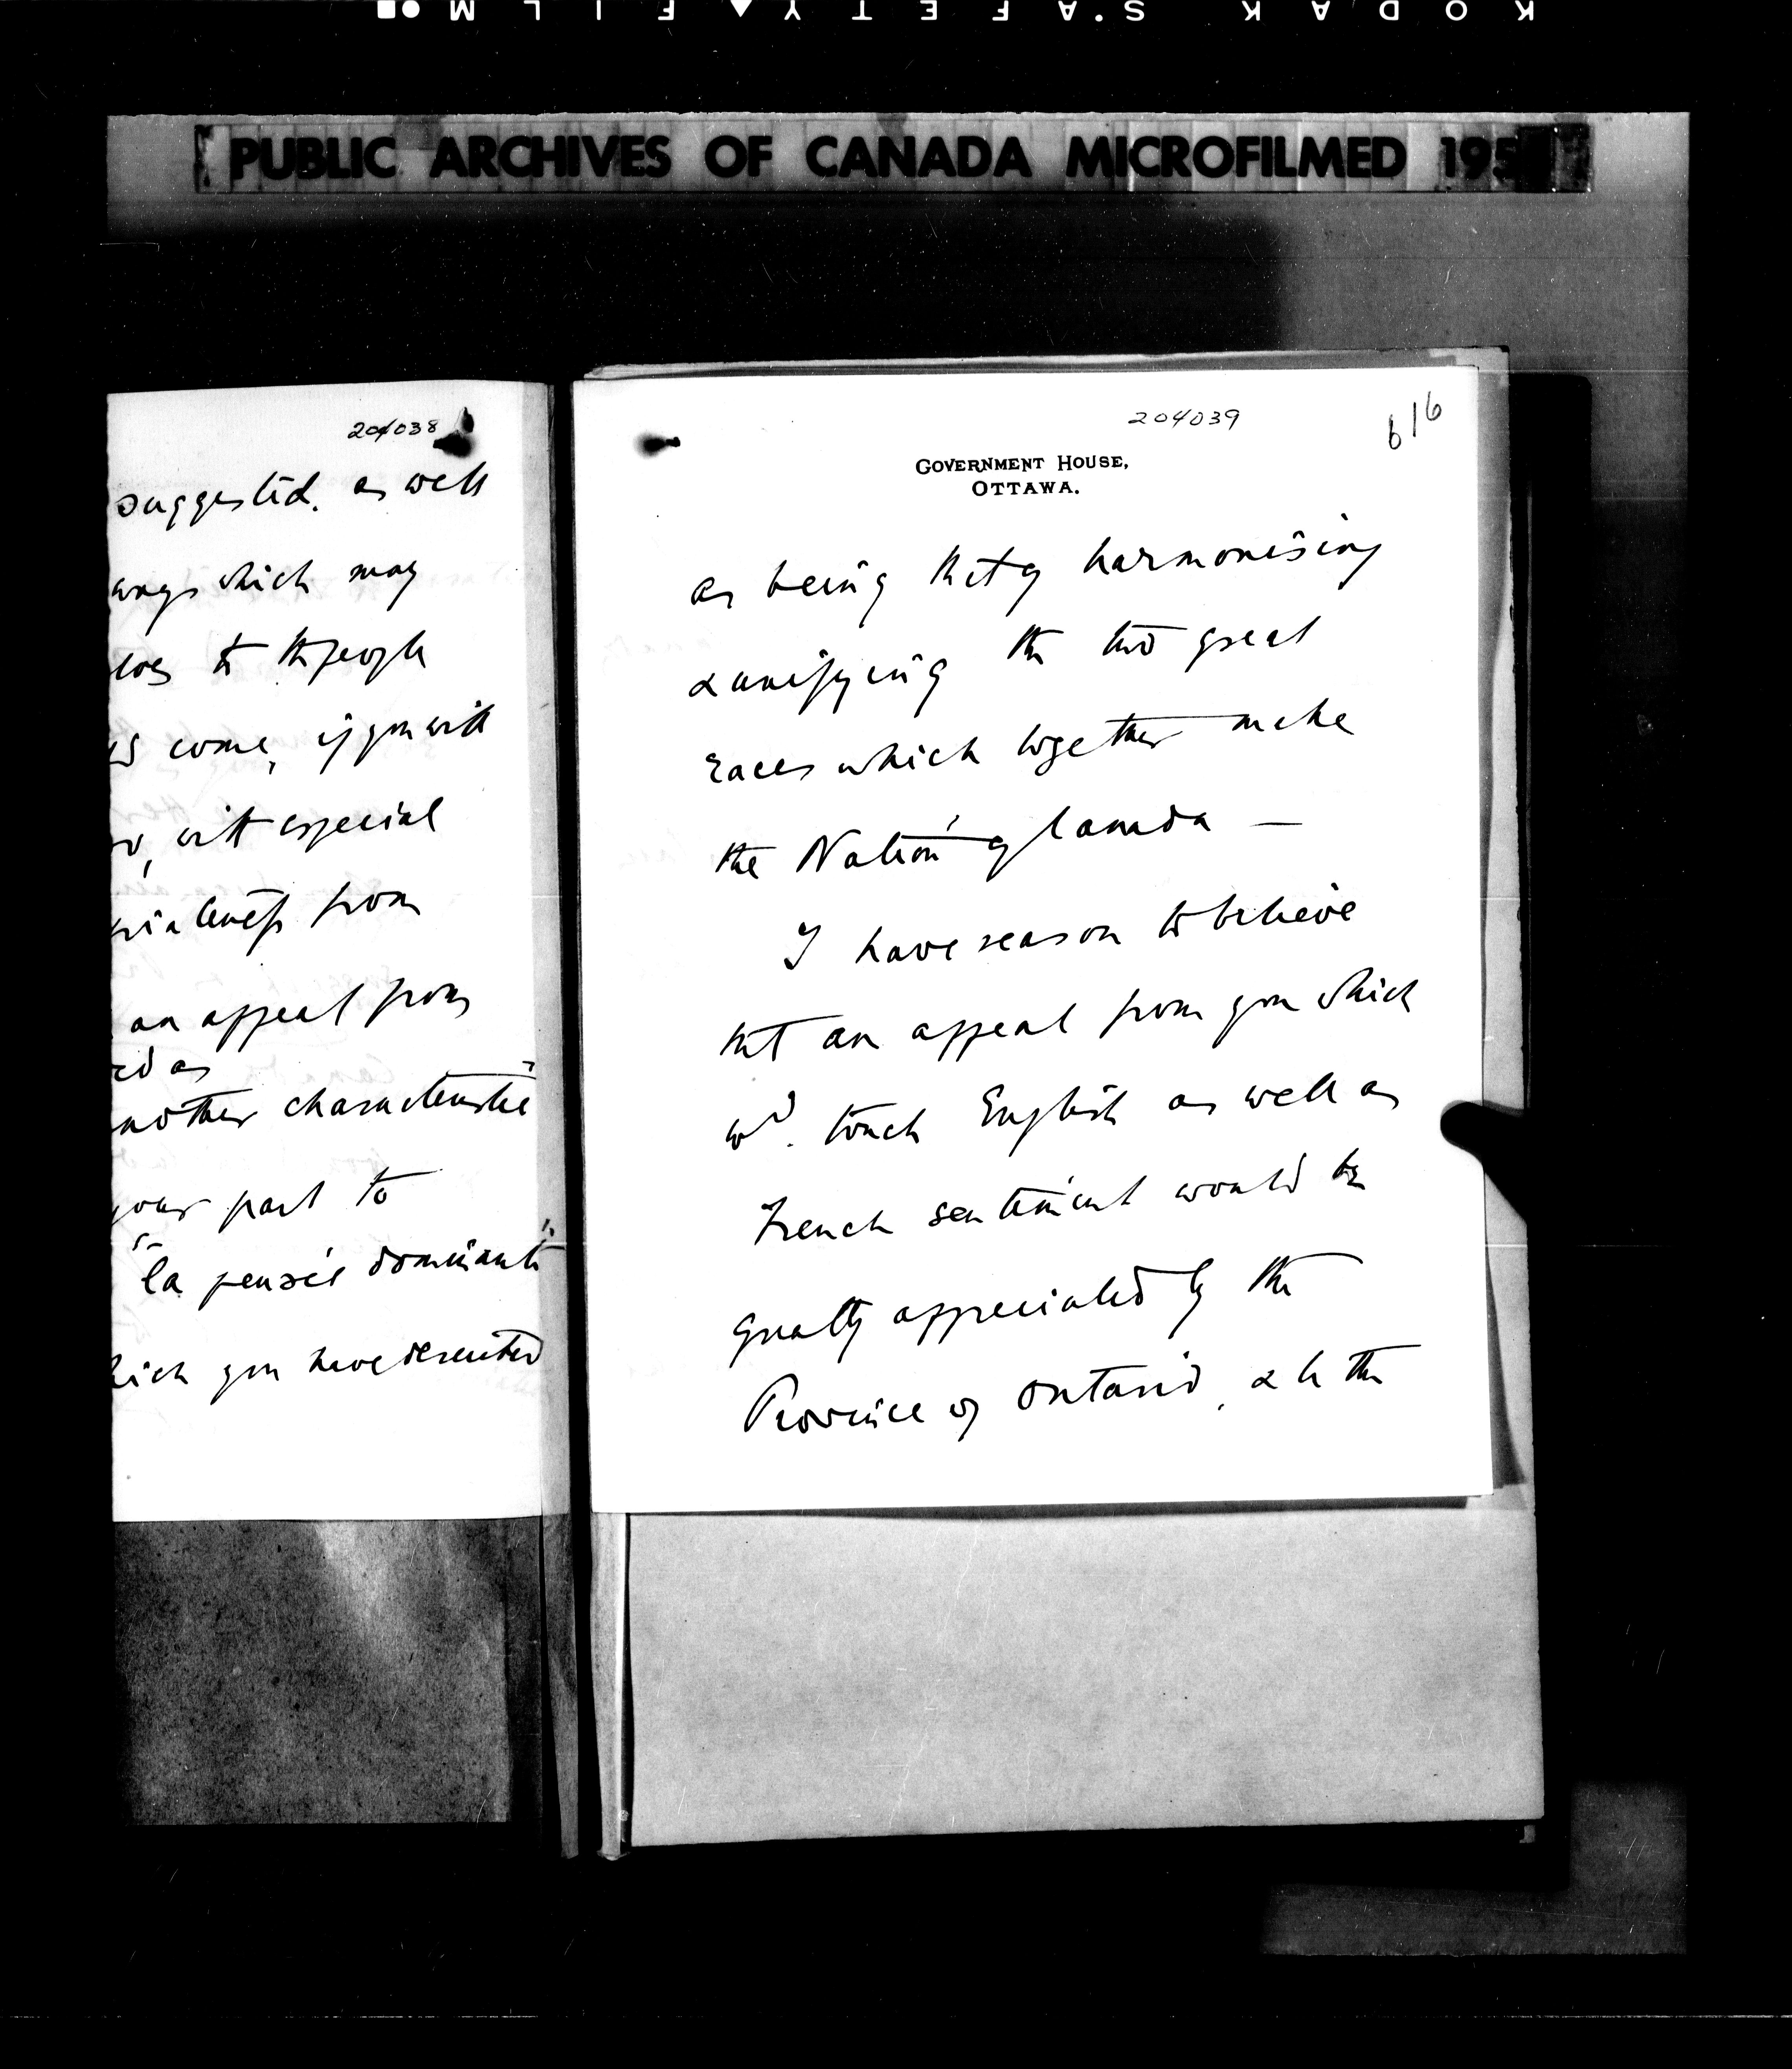 KODAK S.AFETY FILM
PUBLIC ARCHIVES OF CANADA MICROFILMED 195
204038
suggested. as well
ways which may
to the people
come, if you will
with especial
from
an appeal from
ed as
another characteristic
your part to
"la pensée dominante"
hich you have described
204039
616
GOVERNMENT HOUSE,
OTTAWA.
as being that of harmonising
& unifying the two great
races which together make
the Nation of Canada —
I have reason to believe
tht an appeal from you which
wd. touch English as well as
French sentiment would be
greatly appreciated by the
Province of Ontario, & by the